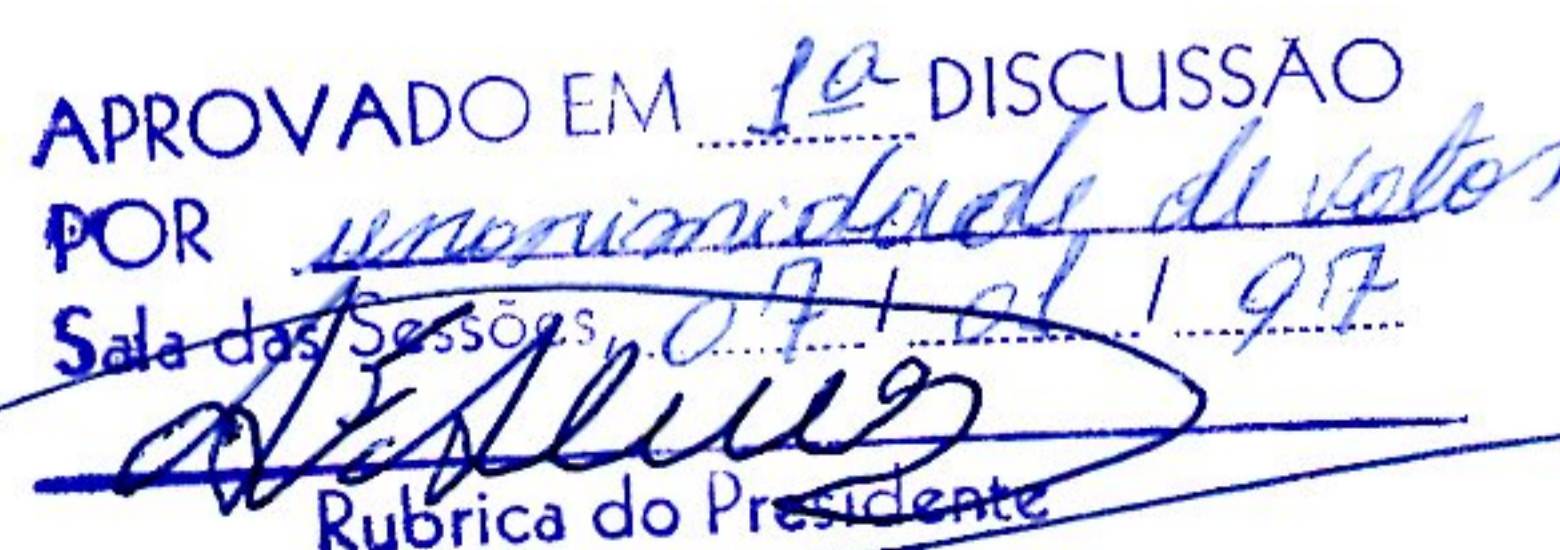 APROVADO EM 1ª DISCUSSÃO
POR unanimidade de votos
Sala das Sessões, 07 / 01 / 97
Rubrica do Presidente